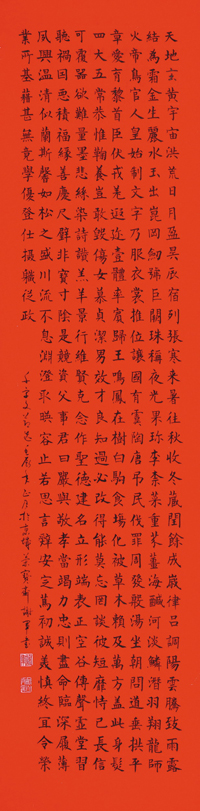 天地玄黄宇宙洪荒日月盈昃辰宿列張寒来暑往秋冬蔵閏餘成嵗律吕調陽雲騰致雨露
結為霜金生麗水玉出崑岡劒號巨闕珠稱夜光果珎李柰菜重芥薑海鹹河淡鱗潛羽翔龍師
火帝鳥官人皇始制文字乃服衣裳推位讓國有虞陶唐弔民伐罪周發殷湯坐朝問道垂拱平
章愛育黎首臣伏戎羌遐迩壹體率賓歸王鳴鳳在樹白駒食場化被草木賴及萬方盖此身髮
四大五常恭惟鞠養豈敢毁傷女慕貞潔男效才良知過必改得能莫忘罔談彼短靡恃己長信
可覆器欲難量墨悲絲染詩讚羔羊景行維賢克念作聖德建名立形端表正空谷傳聲虚堂習
聽禍因悪積福縁善慶尺璧非寶寸陰是競資父事君曰嚴與敬孝當竭力忠則盡命臨深履薄
夙興温清似蘭斯馨如松之盛川流不息淵澄取暎容止若思言辭安定篤初誠美慎終宜令榮
業所基藉甚無竟學優登仕攝職從政
千字文